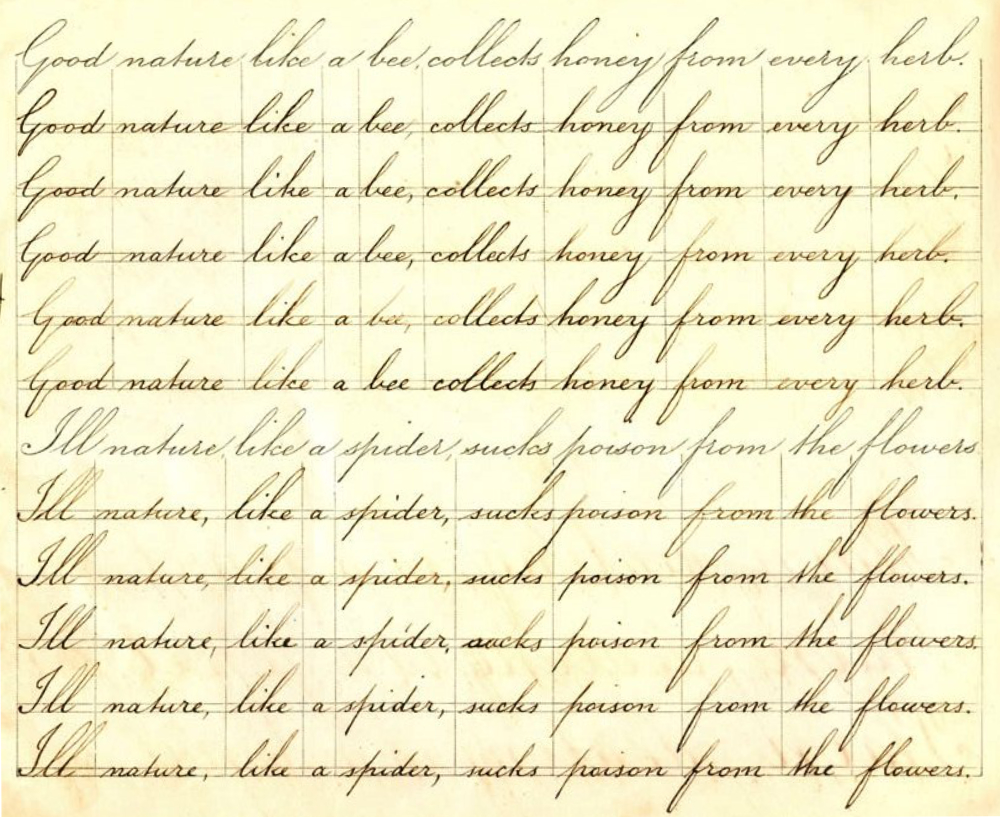 Good nature like a bee, collects honey from every herb.
Good nature like a bee, collects honey from every herb.
Good nature like a bee, collects honey from every herb.
Good nature like a bee, collects honey from every herb.
Good nature like a bee, collects honey from every herb.
Good nature like a bee collects honey from every herb.
Ill nature, like a spider, sucks poison from the flowers
Ill nature, like a spider, sucks poison from the flowers.
Ill nature, like a spider, sucks poison from the flowers.
Ill nature, like a spider, sucks poison from the flowers.
Ill nature, like a spider, sucks poison from the flowers.
Ill nature, like a spider, sucks poison from the flowers.